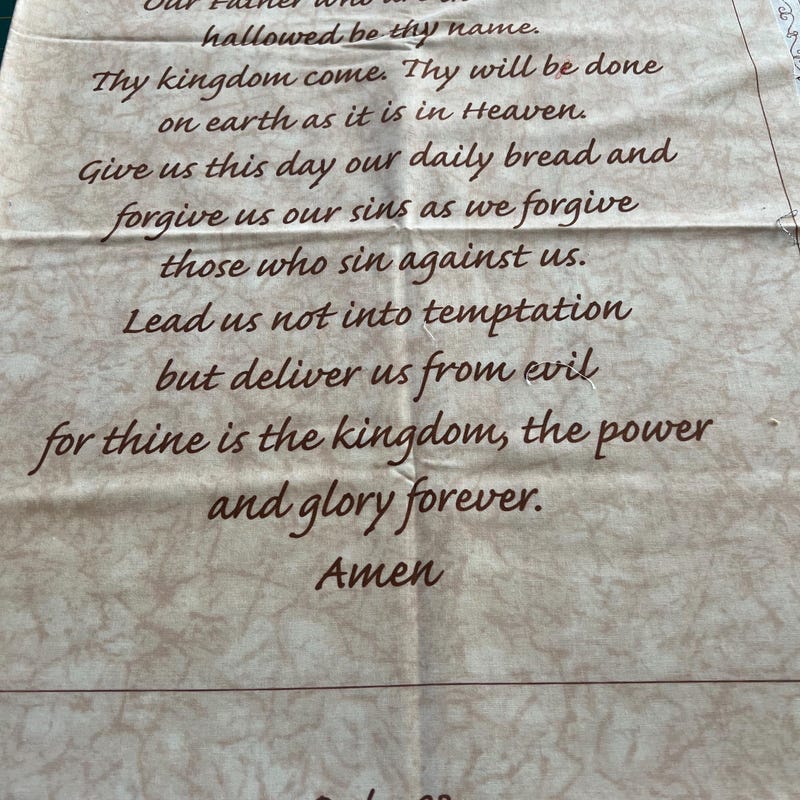 Our Father who are in
hallowed be thy name.
Thy kingdom come. Thy will be done
on earth as it is in Heaven.
Give us this day our daily bread and
forgive us our sins as we forgive
those who sin against us.
Lead us not into temptation
but deliver us from evil
for thine is the kingdom, the power
and glory forever.
Amen